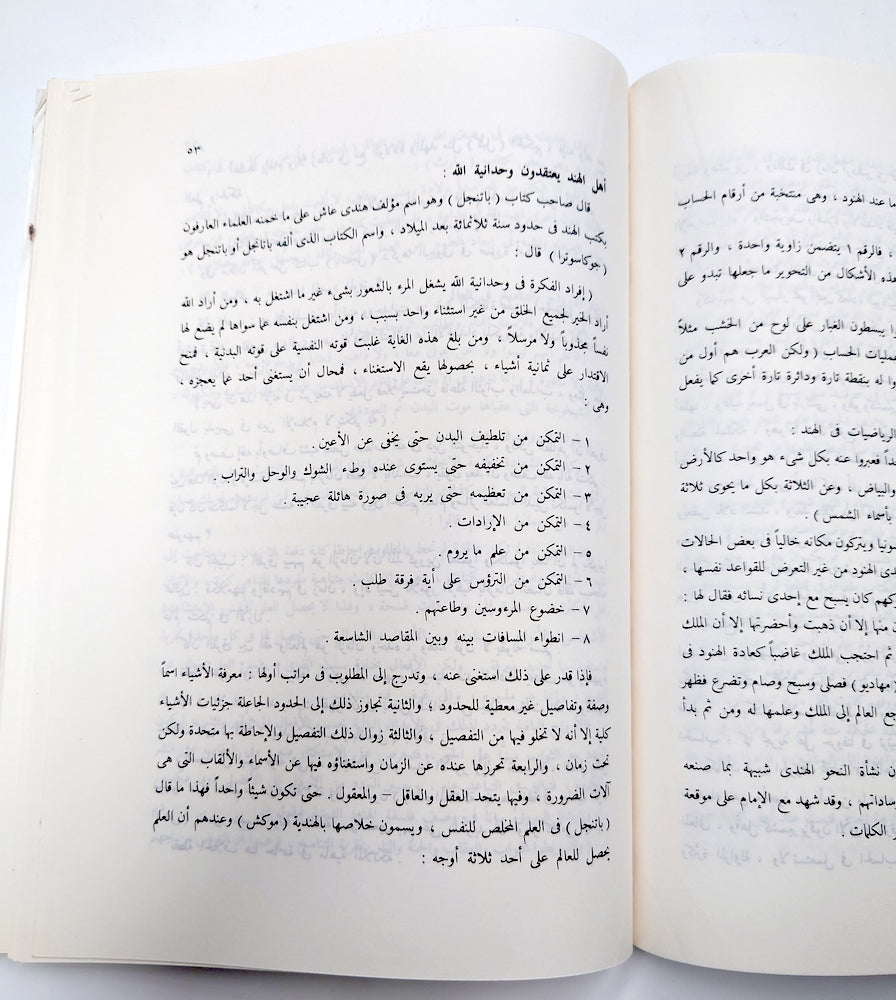 ما عند الهنود ، وهى منتخبة من أرقام الحساب
، فالرقم ١ يتضمن زاوية واحدة ، والرقم ٢
هذه الأشكال من التحوير ما جعلها تبدو على
يبسطون الغبار على لوح من الخشب مثلاً
عمليات الحساب ( ولكن العرب هم أول من
له بنقطة تارة ودائرة تارة أخرى كما يفعل
الرياضيات فى الهند :
فعبروا عنه بكل شىء هو واحد كالأرض
والبياض ، وعن الثلاثة بكل ما يحوى ثلاثة
بأسماء الشمس ) .
ويتركون مكانه خالياً فى بعض الحالات
الهنود من غير التعرض للقواعد نفسها ،
كان يسبح مع إحدى نسائه فقال لها :
منها إلا أن ذهبت وأحضرتها إلا أن الملك
ثم احتجب الملك غاضباً كعادة الهنود فى
مهاديو ) فصلى وسبح وصام وتضرع فظهر
العالم إلى الملك وعلمها له ومن ثم بدأ
نشأة النحو الهندى شبيهة بما صنعه
، وقد شهد مع الإمام على موقعة
الكلمات .
٥٣
أهل الهند يعتقدون وحدانية الله :
قال صاحب كتاب ( باتنجل ) وهو اسم مؤلف هندى عاش على ما خمنه العلماء العارفون
بكتب الهند فى حدود سنة ثلاثمائة بعد الميلاد ، واسم الكتاب الذى ألفه باتانجل أو باتنجل هو
( جوكاسوترا ) قال :
( إفراد الفكرة فى وحدانية الله يشغل المرء بالشعور بشىء غير ما اشتغل به ، ومن أراد الله
أراد الخير لجميع الخلق من غير استثناء واحد بسبب ، ومن اشتغل بنفسه عما سواها لم يضع لها
نفساً مجذوباً ولا مرسلاً ، ومن بلغ هذه الغاية غلبت قوته النفسية على قوته البدنية ، فمنح
الاقتدار على ثمانية أشياء ، بحصولها يقع الاستغناء ، فمحال أن يستغنى أحد عما يعجزه ،
وهى :
١ – التمكن من تلطيف البدن حتى يخفى عن الأعين .
٢ – التمكن من تخفيفه حتى يستوى عنده وطء الشوك والوحل والتراب .
٣ – التمكن من تعظيمه حتى يريه فى صورة هائلة عجيبة .
٤ – التمكن من الإرادات .
٥ – التمكن من علم ما يروم .
٦ – التمكن من الترؤس على أية فرقة طلب .
٧ – خضوع المرءوسين وطاعتهم .
٨ – انطواء المسافات بينه وبين المقاصد الشاسعة .
فإذا قدر على ذلك استغنى عنه ، وتدرج إلى المطلوب فى مراتب أولها : معرفة الأشياء اسماً
وصفة وتفاصيل غير معطية للحدود ؛ والثانية تجاوز ذلك إلى الحدود الجاعلة جزئيات الأشياء
كلية إلا أنه لا تخلو فيها من التفصيل ، والثالثة زوال ذلك التفصيل والإحاطة بها متحدة ولكن
تحت زمان ، والرابعة تحررها عنده عن الزمان واستغناؤه فيها عن الأسماء والألقاب التى هى
آلات الضرورة ، وفيها يتحد العقل والعاقل – والمعقول . حتى تكون شيئاً واحداً فهذا ما قال
( باتنجل ) فى العلم المخلص للنفس ، ويسمون خلاصها بالهندية ( موكش ) وعندهم أن العلم
يحصل للعالم على أحد ثلاثة أوجه :